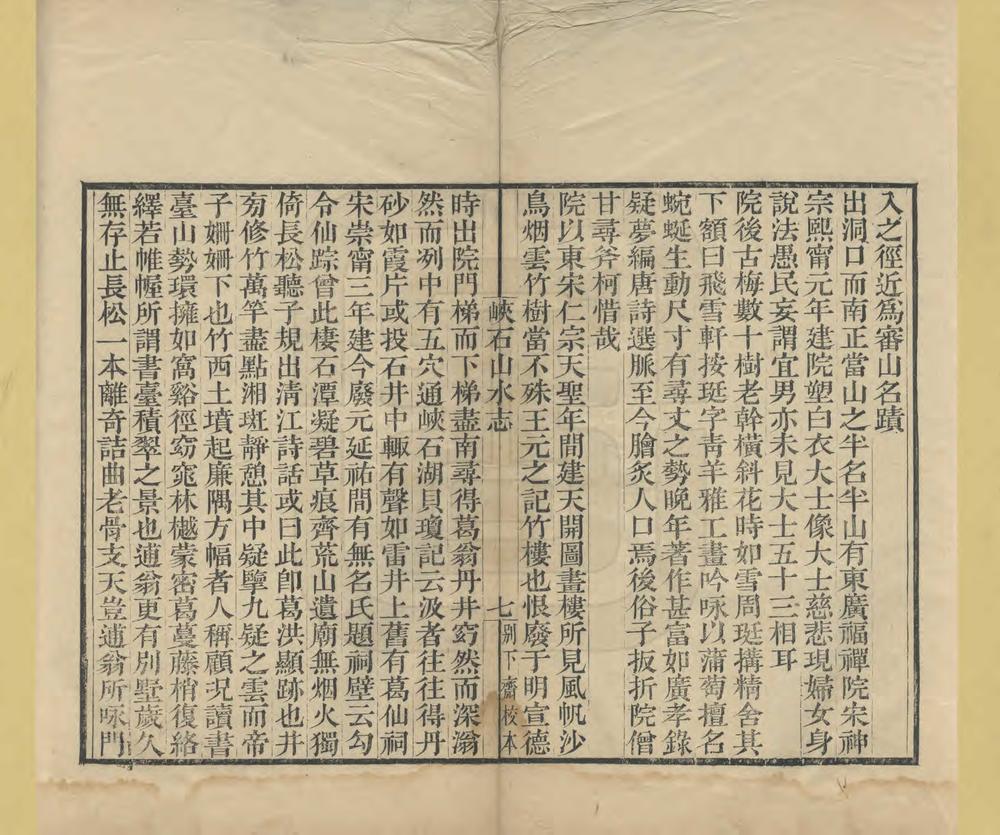 入之徑近爲審山名蹟
出洞口而南正當山之半名半山有東廣福禪院宋神
宗熙甯元年建院塑白衣大士像大士慈悲現婦女身
說法愚民妄謂宜男亦未見大士五十三相耳
院後古梅數十樹老幹橫斜花時如雪周珽搆精舍其
下額曰飛雪軒按珽字靑羊雅工畫吟咏以蒲萄擅名
蜿蜒生動尺寸有尋丈之勢晚年著作甚富如廣孝錄
疑夢編唐詩選脈至今膾炙人口焉後俗子扳折院僧
甘尋斧柯惜哉
院以東宋仁宗天聖年間建天開圖畫樓所見風帆沙
鳥烟雲竹樹當不殊王元之記竹樓也恨廢于明宣德
峽石山水志
七
別下齋校本
時出院門梯而下梯盡南尋得葛翁丹井窈然而深滃
然而洌中有五穴通峽石湖貝瓊記云汲者往往得丹
砂如霞片或投石井中輙有聲如雷井上舊有葛仙祠
宋崇甯三年建今廢元延祐間有無名氏題祠壁云勾
令仙踪曾此棲石潭凝碧草痕齊荒山遺廟無烟火獨
倚長松聽子規出淸江詩話或曰此卽葛洪顯跡也井
旁修竹萬竿盡點湘斑靜憩其中疑擥九疑之雲而帝
子姍姍下也竹西土墳起廉隅方幅者人稱顧况讀書
臺山勢環擁如窩谿徑窈窕林樾蒙密葛蔓藤梢復絡
繹若帷幄所謂書臺積翠之景也逋翁更有別墅歲久
無存止長松一本離奇詰曲老骨支天豈逋翁所咏門